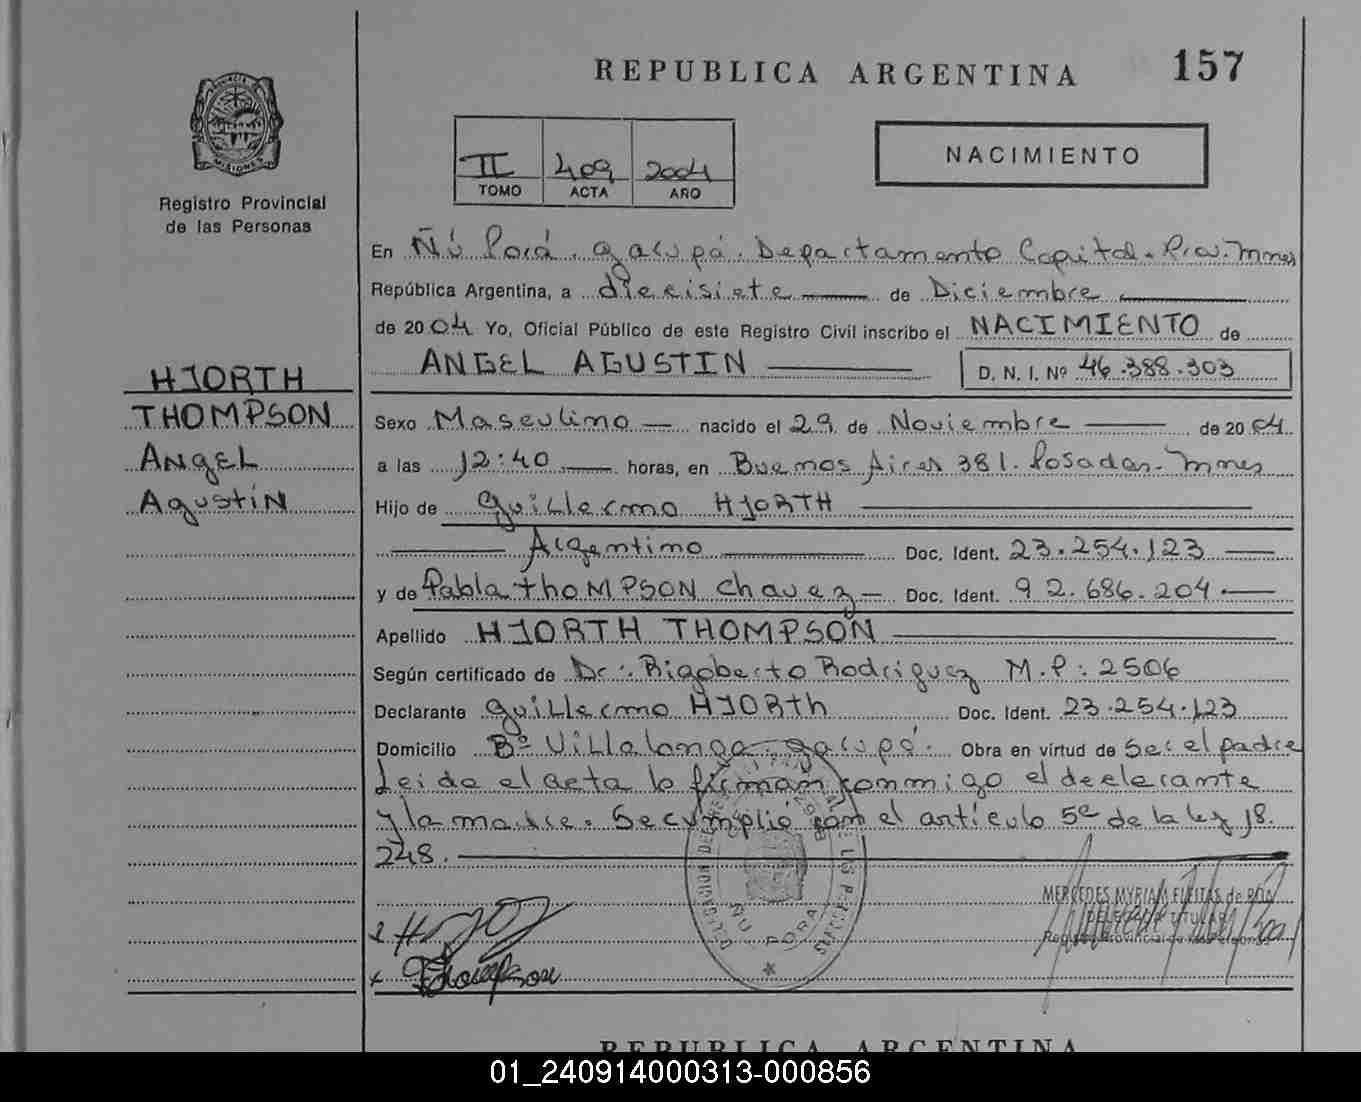 REPUBLICA ARGENTINA
157
PROVINCIA DE
MISIONES
Registro Provincial
de las Personas
II 409 2004
TOMO ACTA AÑO
NACIMIENTO
En Ñú Porá. Garupá. Departamento Capital. Prov. Mnes
República Argentina, a diecisiete de Diciembre
de 2004 Yo, Oficial Público de este Registro Civil inscribo el NACIMIENTO de
ANGEL AGUSTIN
D. N. I. Nº 46.388.303
HJORTH
THOMPSON
Angel
Agustín
Sexo Masculino nacido el 29 de Noviembre de 2004
a las 12:40 horas, en Buenos Aires 381. Posadas- Mnes
Hijo de Guillermo HJORTH
Argentino Doc. Ident. 23.254.123
y de Pabla THOMPSON Chavez Doc. Ident. 92.686.204
Apellido HJORTH THOMPSON
Según certificado de Dr: Rigoberto Rodriguez M.P: 2506
Declarante Guillermo HJORTH Doc. Ident. 23.254.123
Domicilio Bº Villalonga. Garupá. Obra en virtud de Ser el padre
Leida el acta lo firman conmigo el declarante
y la madre. Se cumplió con el artículo 5º de la ley 18.
248.
MERCEDES MYRIAM FLEITAS de
DELEGADA TITULAR
Registro Provincial de las Personas
ÑU PORA
Thompson
REPUBLICA ARGENTINA
01_240914000313-000856